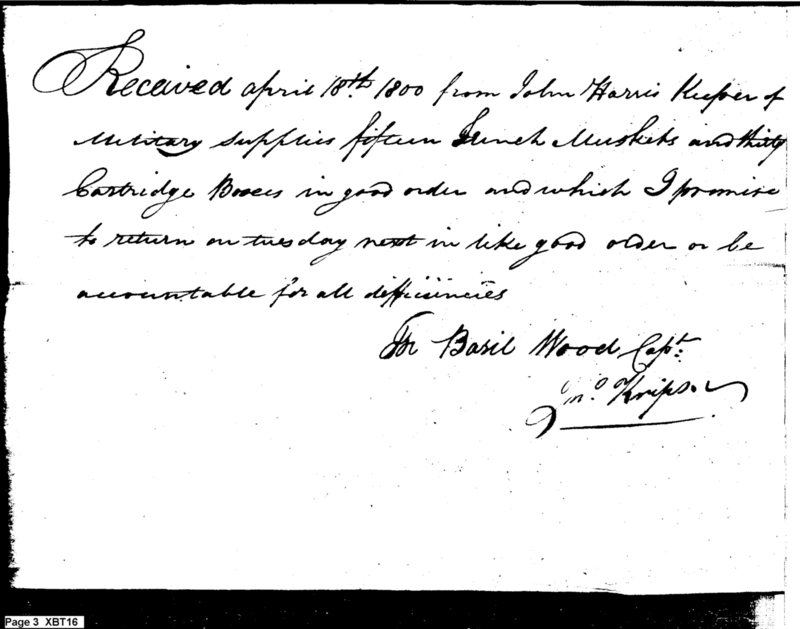 Received april 18th 1800 from John Harris Keeper of
Military supplies fifteen French Muskets and thirty
Cartridge Boxes in good order and which I promise
to return on tuesday next in like good order or be
accountable for all defficiencies
For Basil Wood Capt:
Jno.
Page 3 XBT16